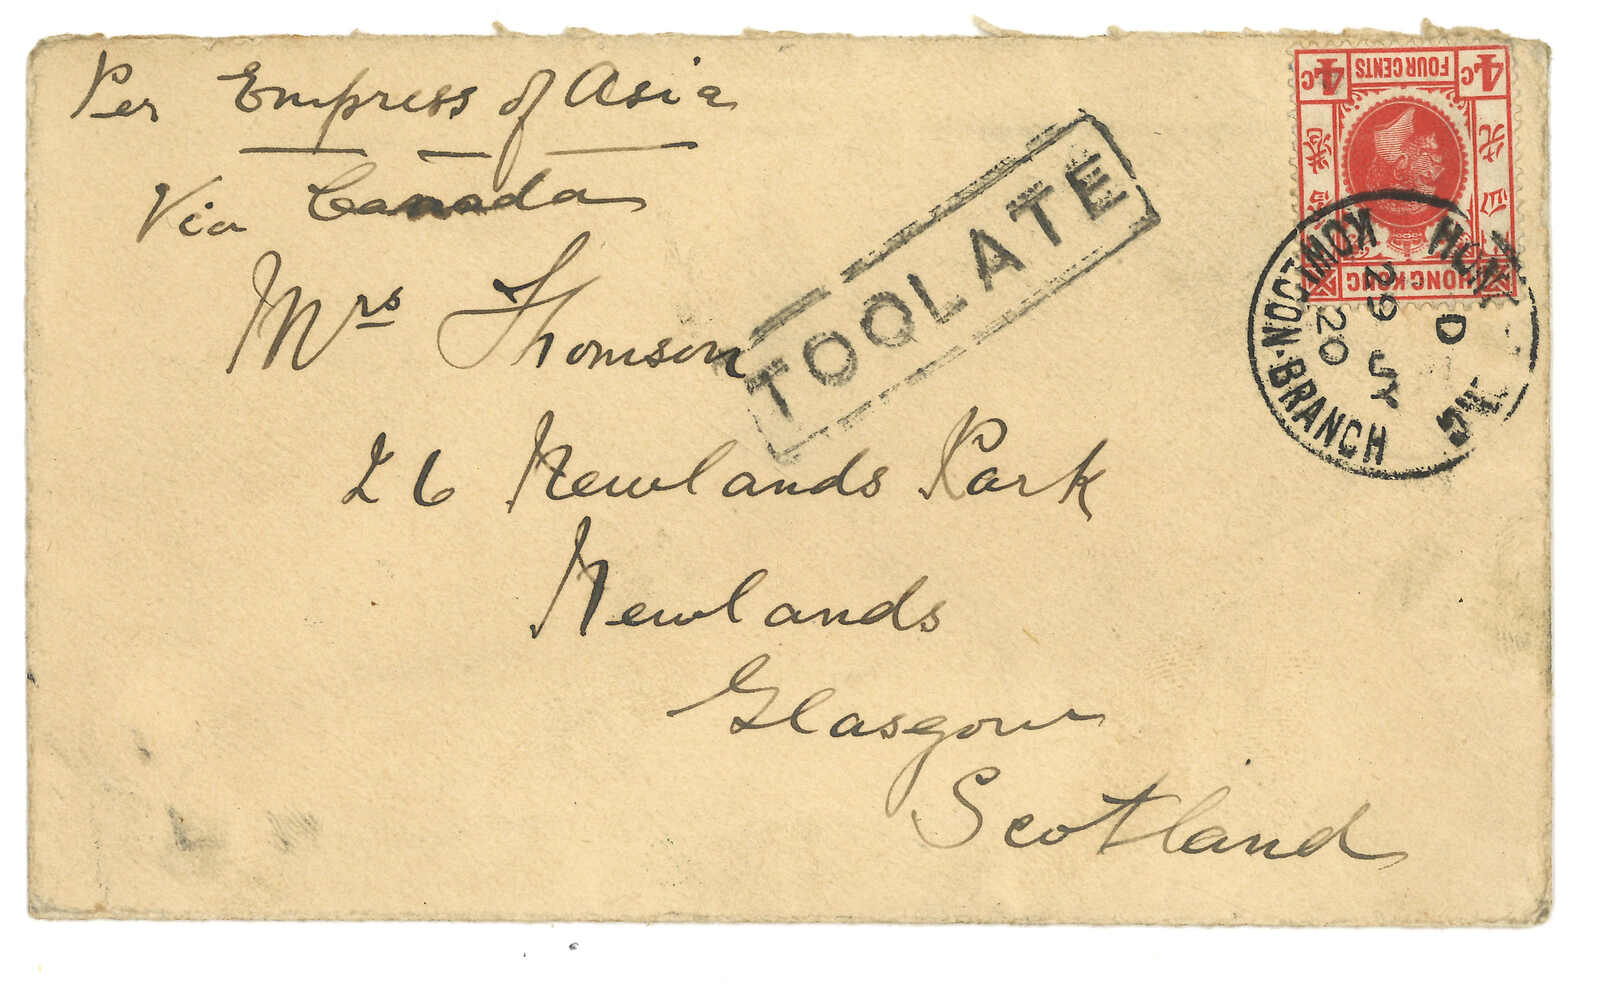 Per Empress of Asia
Via Canada
Mrs Thomson
26 Newlands Park
Newlands
Glasgow
Scotland
TOO LATE
4C FOUR CENTS 4C
HONG KONG
KOWLOON-BRANCH
D
29 JY
20